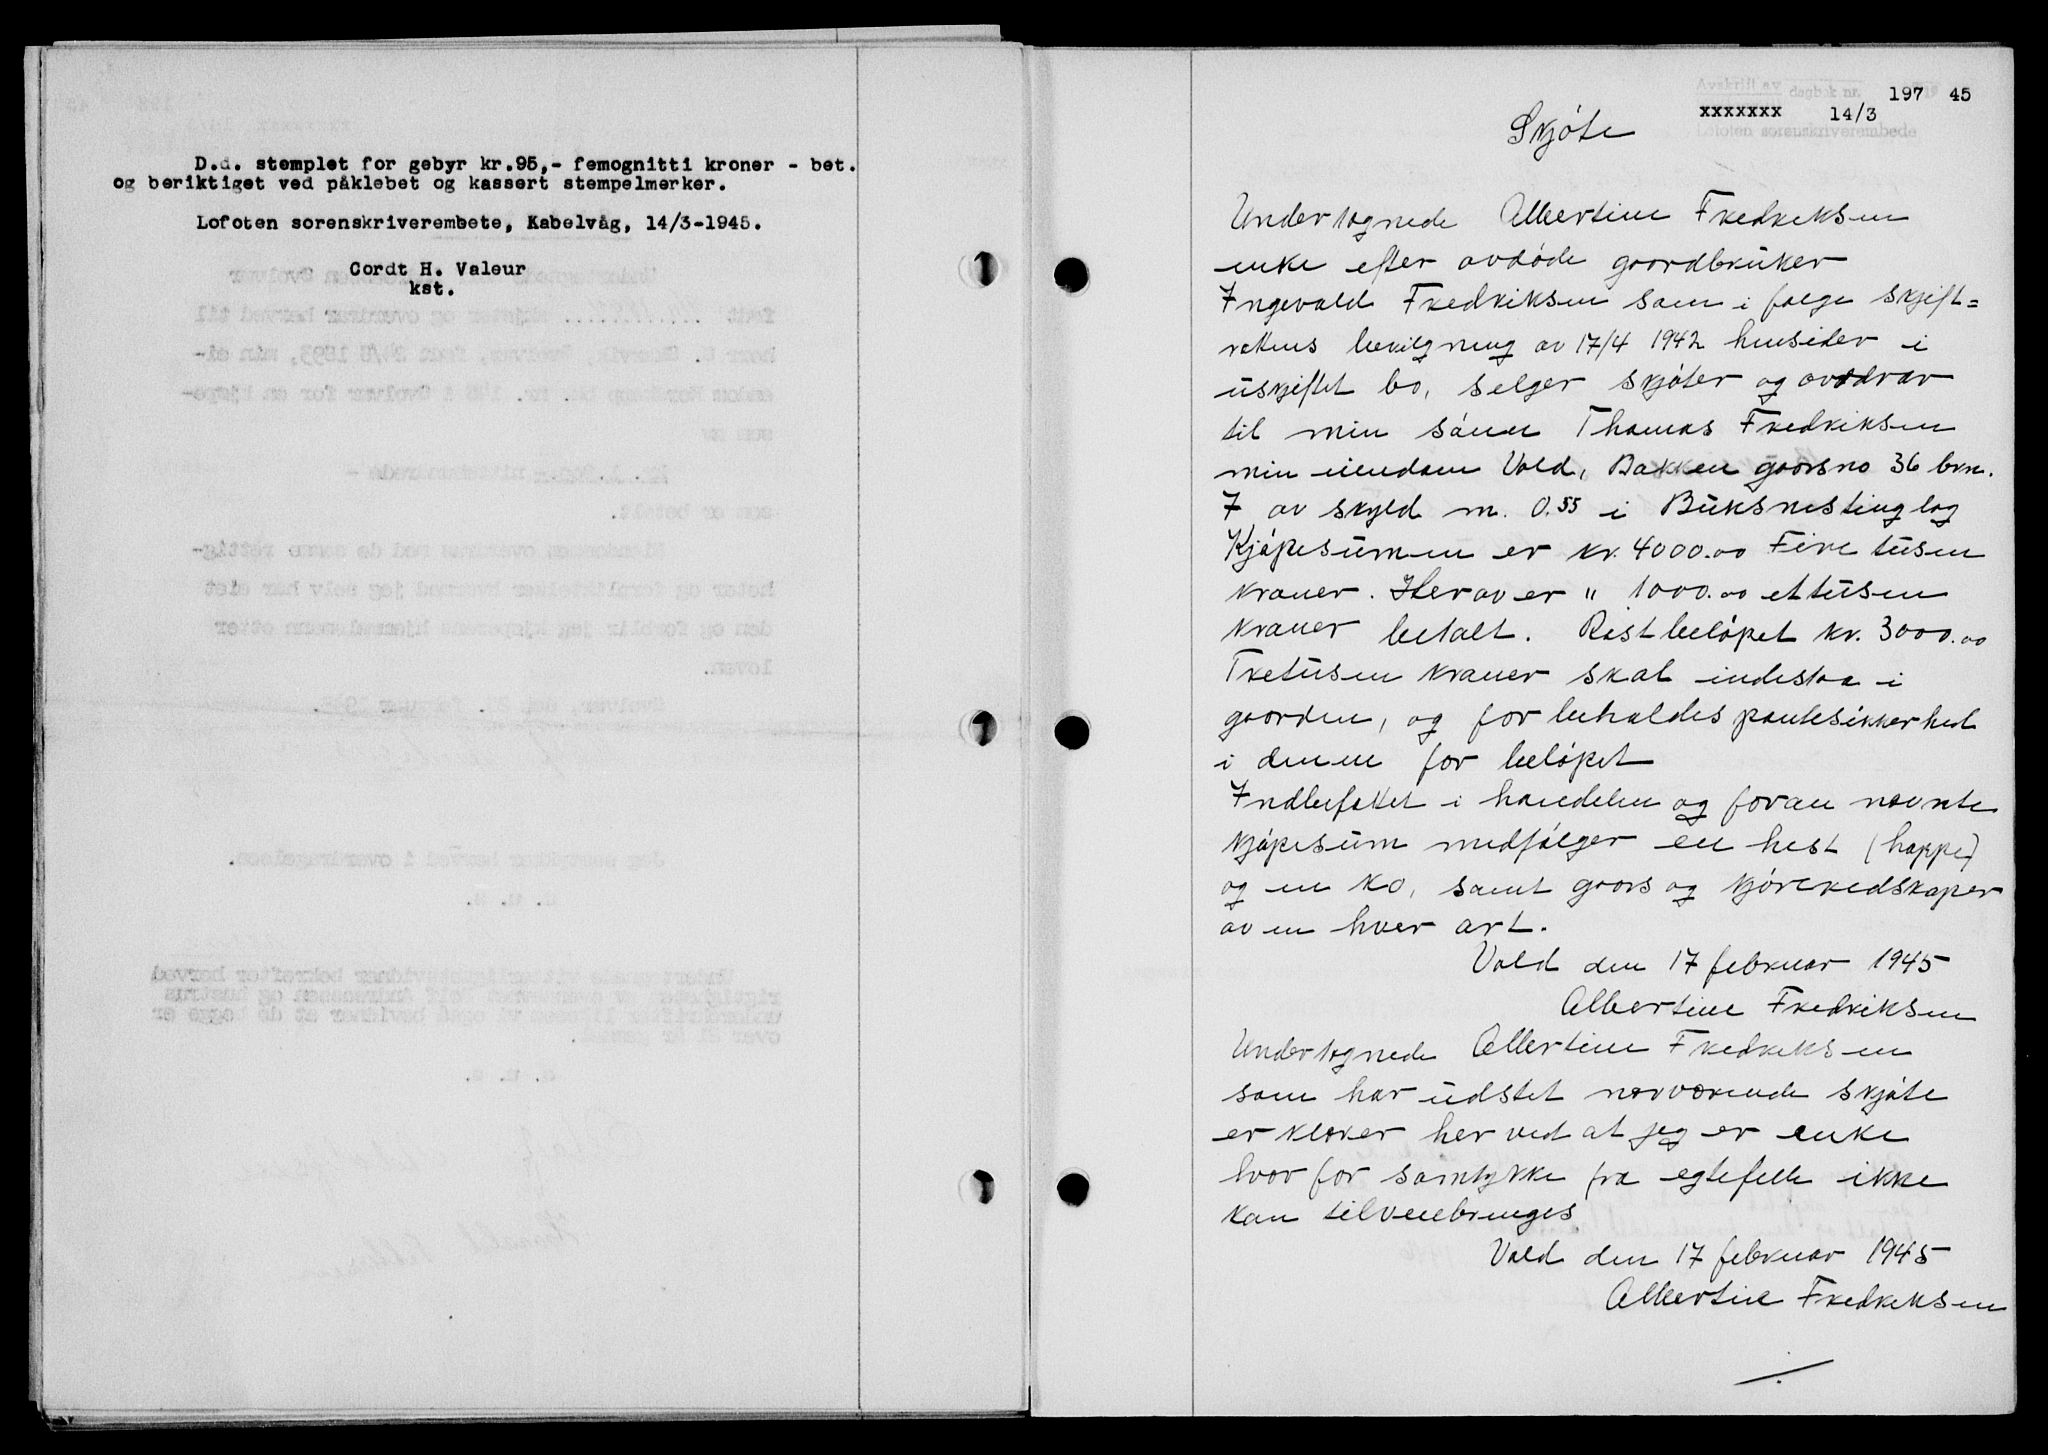 D.d. stemplet for gebyr kr.95,- femognitti kroner - bet.
og beriktiget ved påklebet og kassert stempelmerker.
Lofoten sorenskriverembete, Kabelvåg, 14/3-1945.
Cordt H. Valeur
kst.
Avskrift av dagbok nr. 197 19 45
xxxxxxx 14/3
Lofoten sorenskriverembede
Skjøte
Undertegnede Albertine Fredriksen
enke efter avdøde gaardbruker
Ingevald Fredriksen som i følge skjift=
rettens bevilgning av 17/4 1942 hensider i
uskjiftet bo, selger skjøter og avdrar
til min sønn Thomas Fredriksen
min eiendom Vold, Bakken gaarsno 36 brn.
7 av skyld m. 0.55 i Buksnes tinglag
Kjøpesumen er kr. 4000.00 Fire tusen
kroner. Herav er " 1000.00 et tusen
kroner betalt. Restbeløpet kr. 3000.00
Tretusen kroner skal indestaa i
gaarden, og forbeholdes pantesikkerhed
i denne for beløpet
Indbefattet i handelen og foran nævnte
kjøpesum medfølger en hest (hoppe)
og en ko, samt gaars og kjøreredskaper
av en hver art.
Vold den 17 februar 1945
Albertine Fredriksen
Undertegnede Albertine Fredriksen
som har udstet nærværende skjøte
erklærer herved at jeg er enke
hvorfor samtykke fra egtefelle ikke
kan tilveiebringes
Vold den 17 februar 1945
Albertine Fredriksen